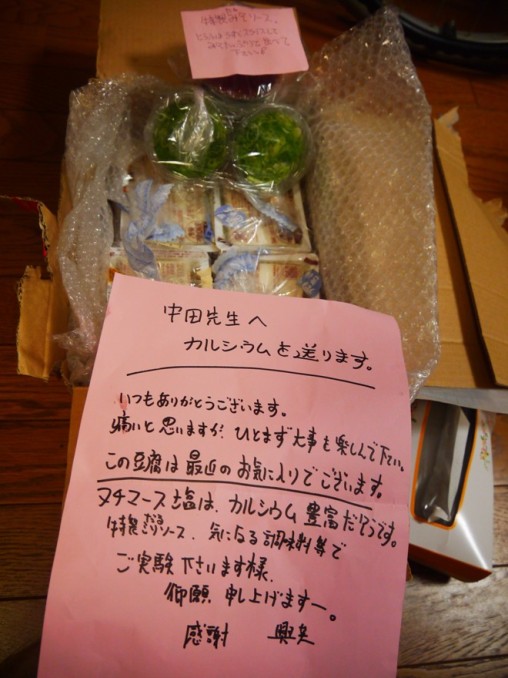 特製みそソース。
中田先生へ
カルシウムを送ります。
いつもありがとうございます。
痛いと思いますが、ひとまず大事も楽しんで下さい。
この豆腐は最近のお気に入りでございます。
ヌチマース塩は、カルシウム豊富だそうです。
特製みそソース、気になる調味料等で
ご実験下さいます様、
御願申し上げますー。
感謝